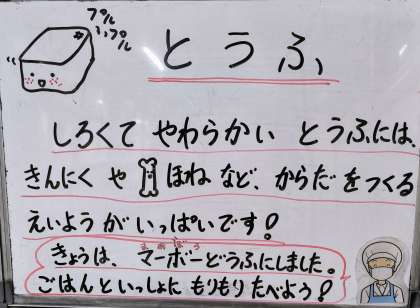 プルップル
とうふ
しろくて やわらかい とうふには、
きんにく や ほね など、からだ をつくる
えいようが いっぱいです!
きょうは、マーボーどうふにしました。
ごはんといっしょに もりもり たべよう!